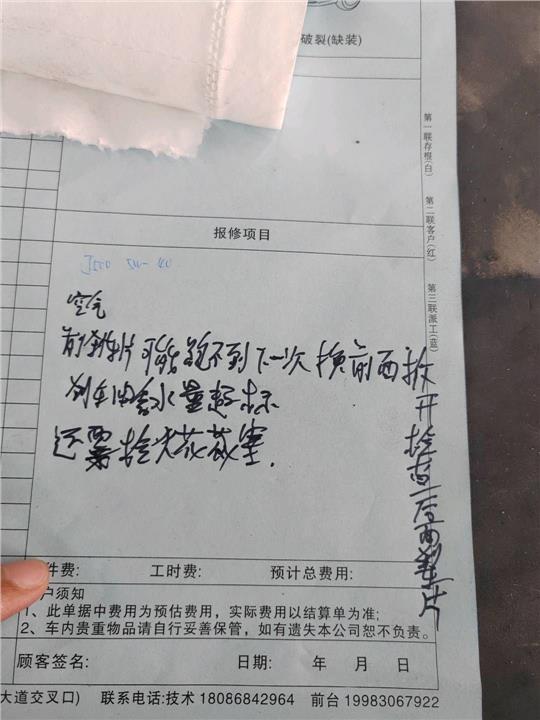 破裂(缺装)
第一联存根(白)
第二联客户(红)
第三联派工(蓝)
报修项目
5W-40
空气
前刹车片可能跑不到下一次 换前两
拆开检查后两刹车片
刹车油含水量超标
还要检火花塞.
件费: 工时费: 预计总费用:
户须知
1、此单据中费用为预估费用，实际费用以结算单为准;
2、车内贵重物品请自行妥善保管，如有遗失本公司恕不负责。
顾客签名: 日期: 年 月 日
大道交叉口) 联系电话:技术 18086842964 前台 19983067922